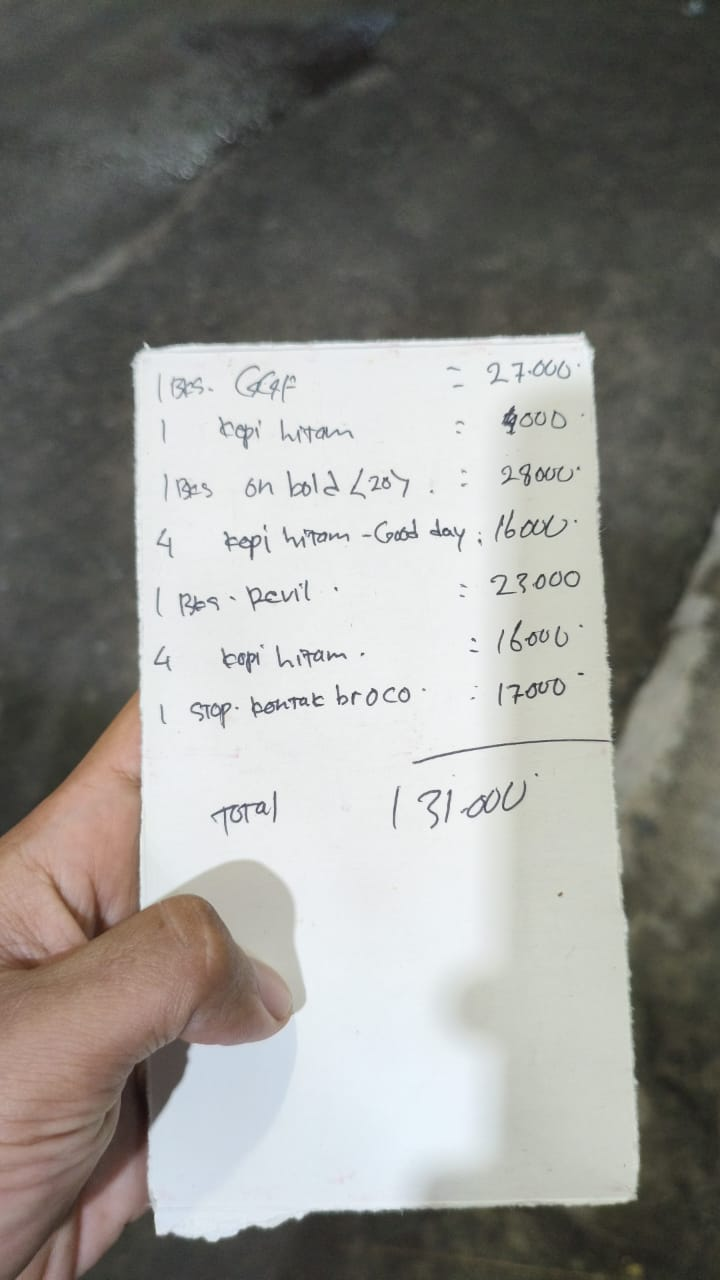 1 Bks. GGF = 27.000
1 kopi hitam = 4000
1 Bks on bold (20). : 28000
4 kopi hitam - Good day : 16000
1 Bks. Devil. : 23.000
4 kopi hitam. : 16000
1 Stop. kontak broco. : 17000
Total 131.000